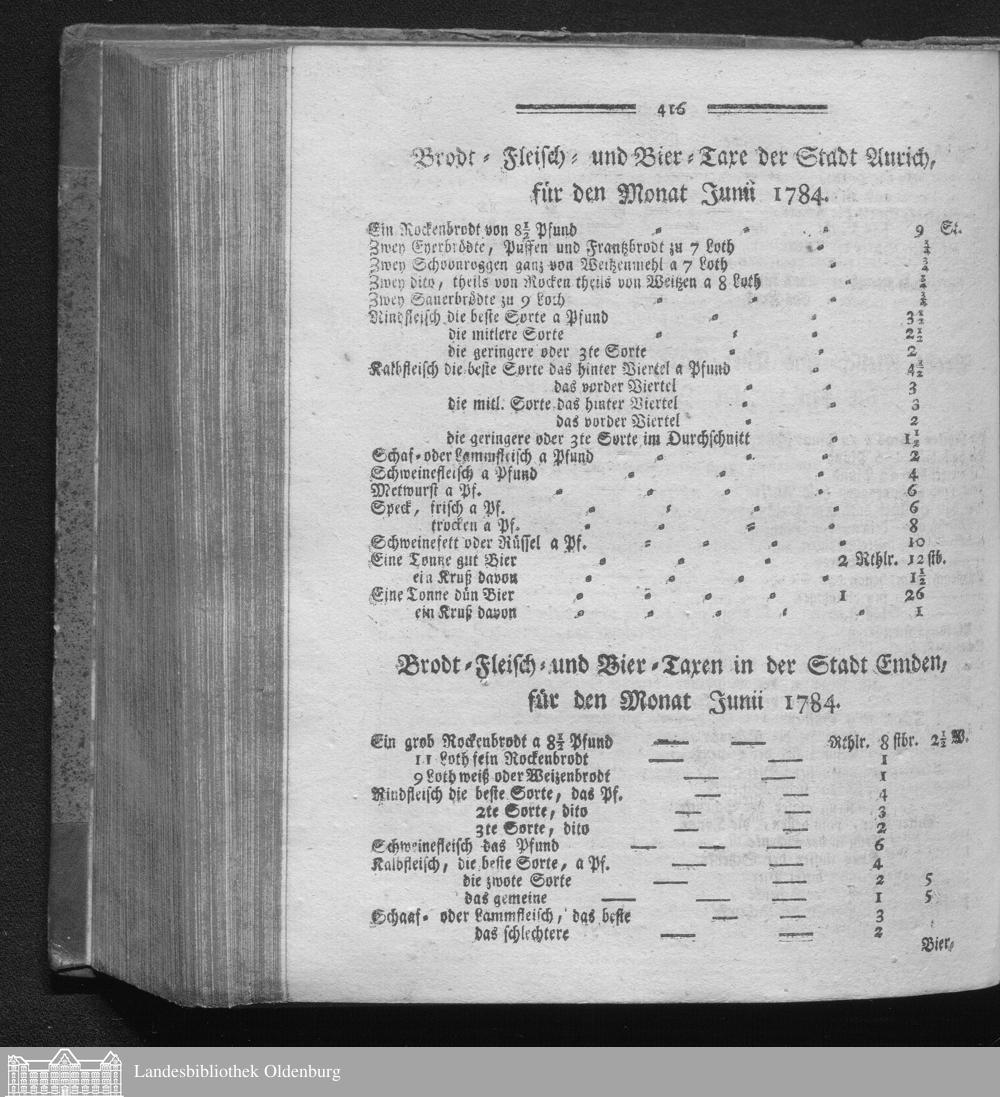 416
Brodt- Fleisch- und Bier-Taxe der Stadt Aurich,
für den Monat Junii 1784.
Ein Rockenbrodt von 8½ Pfund 9 St.
Zwey Eyerbrödte, Puffen und Frantzbrodt zu 7 Loth
Zwey Schoonroggen ganz von Weitzenmehl a 7 Loth
Zwey dito, theils von Rocken theils von Weitzen a 8 Loth
Zwey Sauerbrödte zu 9 Loth
Rindfleisch die beste Sorte a Pfund 3½
die mitlere Sorte 2½
die geringere oder 3te Sorte 2
Kalbfleisch die beste Sorte das hinter Viertel a Pfund 4½
das vorder Viertel 3
die mitl. Sorte das hinter Viertel 3
das vorder Viertel 2
die geringere oder 3te Sorte im Durchschnitt 1½
Schaf- oder Lammfleisch a Pfund 2
Schweinefleisch a Pfund 4
Metwurst a Pf. 6
Speck, frisch a Pf. 6
trocken a Pf. 8
Schweinefett oder Rüssel a Pf. 10
Eine Tonne gut Bier 2 Rthlr. 12 stb.
ein Kruß davon 1½
Eine Tonne dün Bier 1 26
ein Kruß davon 1
Brodt-Fleisch- und Bier-Taxen in der Stadt Emden,
für den Monat Junii 1784.
Ein grob Rockenbrodt a 8½ Pfund — — Rthlr. 8 stbr. 2½ W.
11 Loth fein Rockenbrodt — — 1
9 Loth weiß oder Weizenbrodt — — 1
Rindfleisch die beste Sorte, das Pf. — — 4
2te Sorte, dito — — 3
3te Sorte, dito — — 2
Schweinefleisch das Pfund — — — 6
Kalbfleisch, die beste Sorte, a Pf. — — 4
die zwote Sorte — — 2 5
das gemeine — — — 1 5
Schaaf- oder Lammfleisch, das beste — — 3
das schlechtere — — 2
Bier-
Landesbibliothek Oldenburg